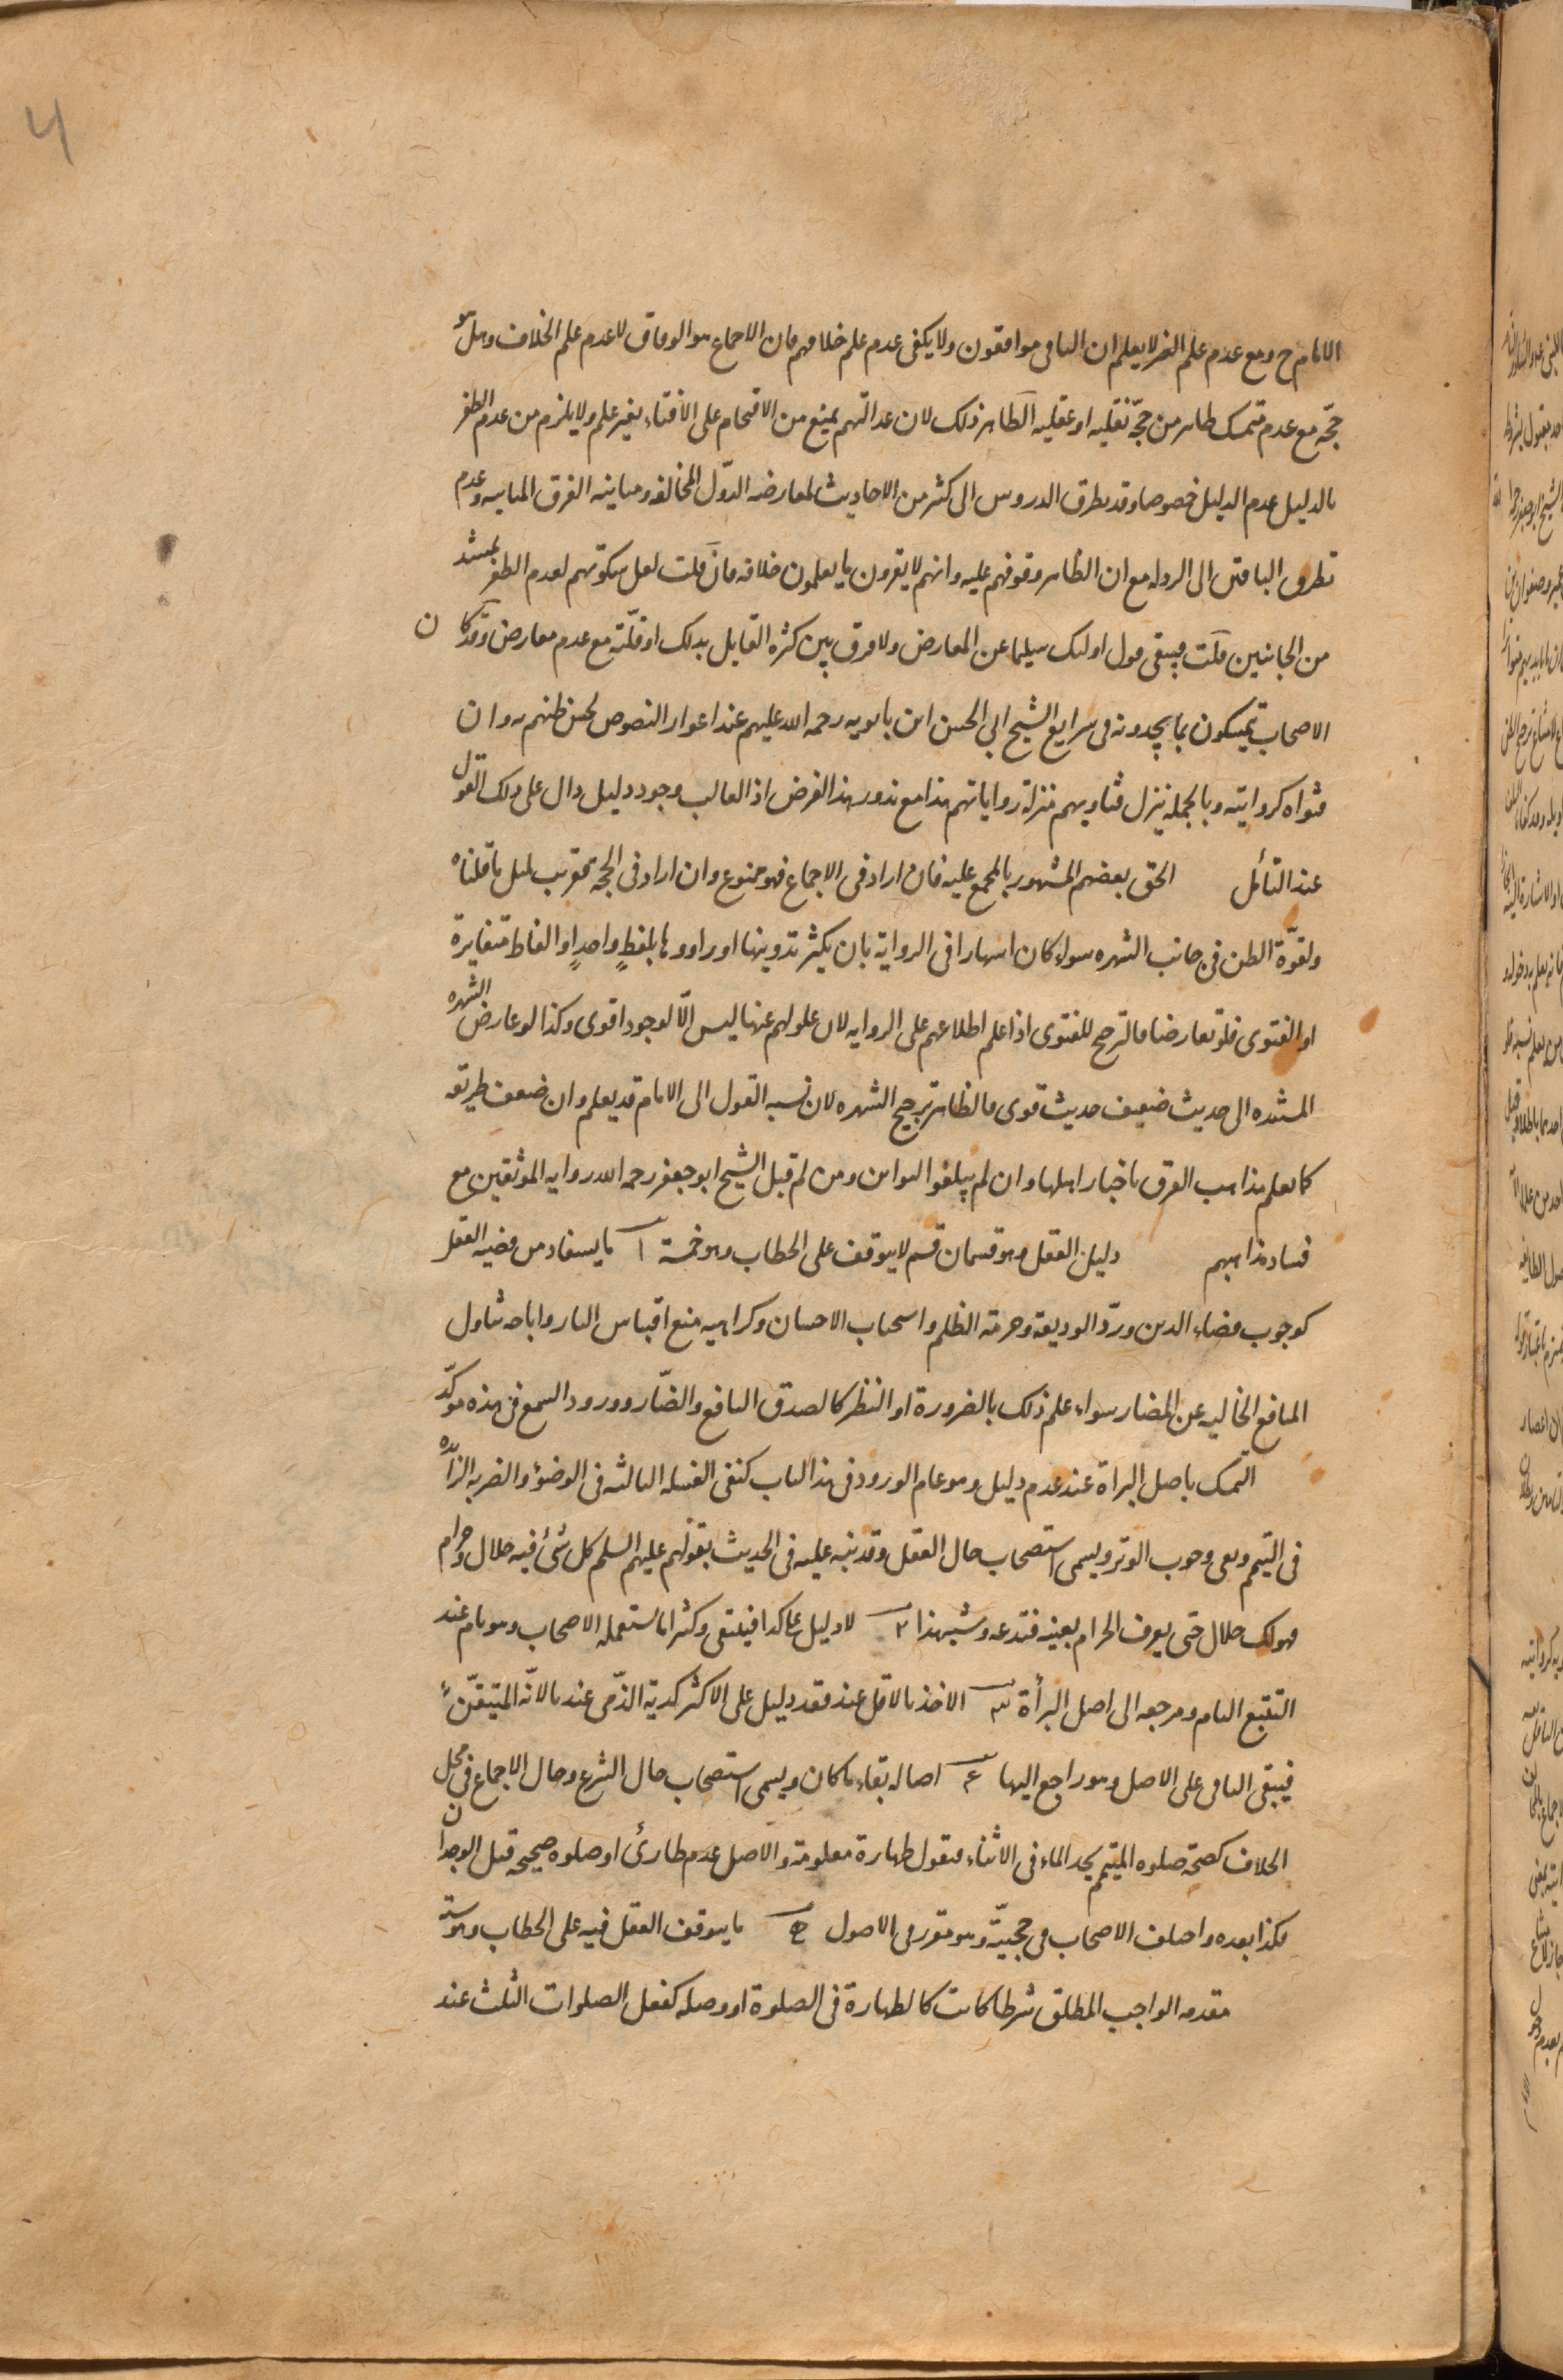 4
الامام ح ومع عدم علم العين لا يعلم ان الباقى موافقون ولا يكفى عدم علم خلافهم فان الاجماع هو الوفاق لا عدم علم الخلاف وهل هو
حجّة مع عدم متمسك ظاهر من حجّة نقليه او عقليه الظاهر ذلك لان عدالتهم يمنع من الاقتحام على الافتاء بغير علم ولا يلزم من عدم الظفر
بالدليل عدم الدليل خصوصا وقد تطرق الدروس الى كثير من الاحاديث لمعارضه الدوّل المخالفه ومباينه الفرق المنافيه وعدم
تطرق الباقين الى الرد له مع ان الظاهر وقوفهم عليه وانهم لا يقرون ما يعلمون خلافه فان قلت لعل سكوتهم لعدم الظفر بمستند
من الجانبين قلت فيبقى قول اولئك سليما عن المعارض ولا فرق بين كثرة القايل بذلك او قلّته مع عدم معارض وقد كان
الاصحاب يتمسكون بما يجدونه فى شرايع الشيخ ابى الحسن ابن بابويه رحمه الله عليهم عند اعواز النصوص لحسن ظنهم به وان
فتواه كروايته وبالجمله ينزل فتاويهم منزلة رواياتهم هذا مع ندور هذا الفرض اذ الغالب وجود دليل دال على ذلك القول
عند التأمل الحق بعضهم المشهور بالمجمع عليه فان اراد فى الاجماع فهو ممنوع وان اراد فى الحجه فقريب لمثل ما قلناه
ولقوّة الظن فى جانب الشهره سواء كان اشتهارا فى الرواية بان يكثر تدوينها او راووها بلفظٍ واحدٍ او الفاظ متغايرة
او الفتوى فلو تعارضا فالترجيح للفتوى اذا علم اطلاعهم على الروايه لان عدولهم عنها ليس الّا لوجود اقوى وكذا لو عارض الشهره
المستنده الى حديث ضعيف حديث قوى فالظاهر ترجيح الشهره لان نسبه القول الى الامام قد يعلم وان ضعف طريقه
كما يعلم مذاهب الفرق باخبار اهلها وان لم يبلغوا التواتر ومن ثم قبل الشيخ ابو جعفر رحمه الله روايه الموثقين مع
فساد مذاهبهم دليل العقل وهو قسمان قسم لا يتوقف على الخطاب وهو خمسة ا ما يستفاد من قضيه العقل
كوجوب قضاء الدين وردّ الوديعة وحرمة الظلم واستحباب الاحسان وكراهيه منع اقتباس النار واباحه تناول
المنافع الخاليه عن المضار سواء علم ذلك بالضرورة او النظر كالصدق النافع والضّار وورود السمع فى هذه موكّد
التمسك باصل البراة عند عدم دليل وهو عام الورود فى هذا الباب كنفى الغسله الثالثه فى الوضوء والضربه الزائده
فى التيمم ونفى وجوب الوتر ويسمى استصحاب حال العقل وقد نبه عليه فى الحديث بقولهم عليهم السلم كل شئ فيه حلال وحرام
فهو لك حلال حتى يعرف الحرام بعينه فتدعه وشبه هذا ٢ لا دليل على كذا فينتفى وكثيرا ما يستعمله الاصحاب وهو تام عند
التتبع التام ومرجعه الى اصل البرأة ٣ الاخذ بالاقل عند فقد دليل على الاكثر كدية الذّمى عندنا لانّه المتيقّن
فيبقى الباقى على الاصل وهو راجع اليها ٤ اصاله بقاء ما كان ويسمى استصحاب حال الشرع وحال الاجماع فى محل
الخلاف كصحّة صلوه المتيمم يجد الماء فى الاثناء فنقول طهارة معلومة والاصل عدم طارئ او صلوه صحيحه قبل الوجدان
فكذا بعده واختلف الاصحاب فى حجيّته وهو مقرر فى الاصول ما يتوقف العقل فيه على الخطاب وهو ستة
مقدمه الواجب المطلق شرطا كانت كالطهارة فى الصلوة او وصله كفعل الصلوات الثلث عند